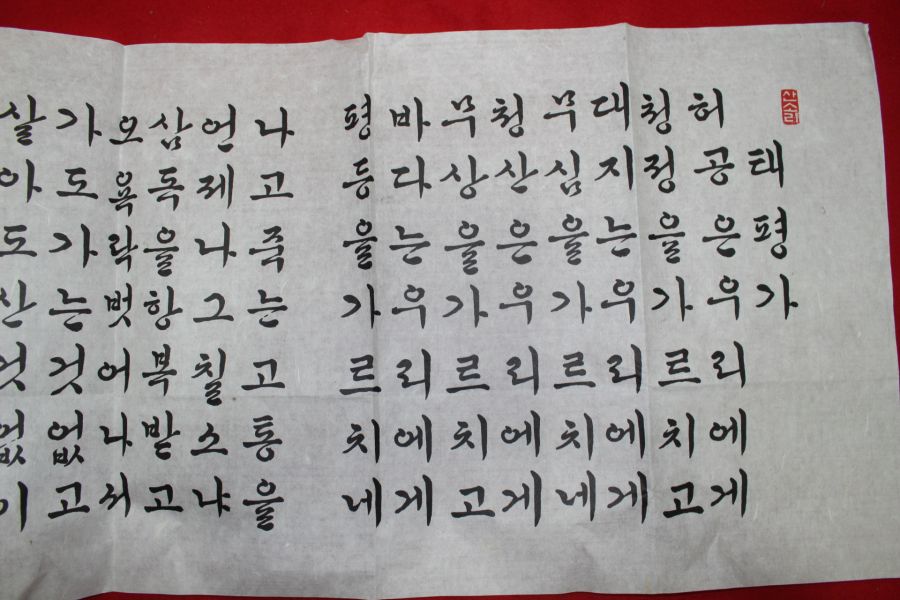 산소리
태평가
허공은우리에게
청정을가르치고
대지는우리에게
무심을가르치네
청산은우리에게
무상을가르치고
바다는우리에게
평등을가르치네
나고죽는고통을
언제나그칠소냐
삼독을항복받고
오욕락벗어나서
가도가는것없고
살아도산것없이